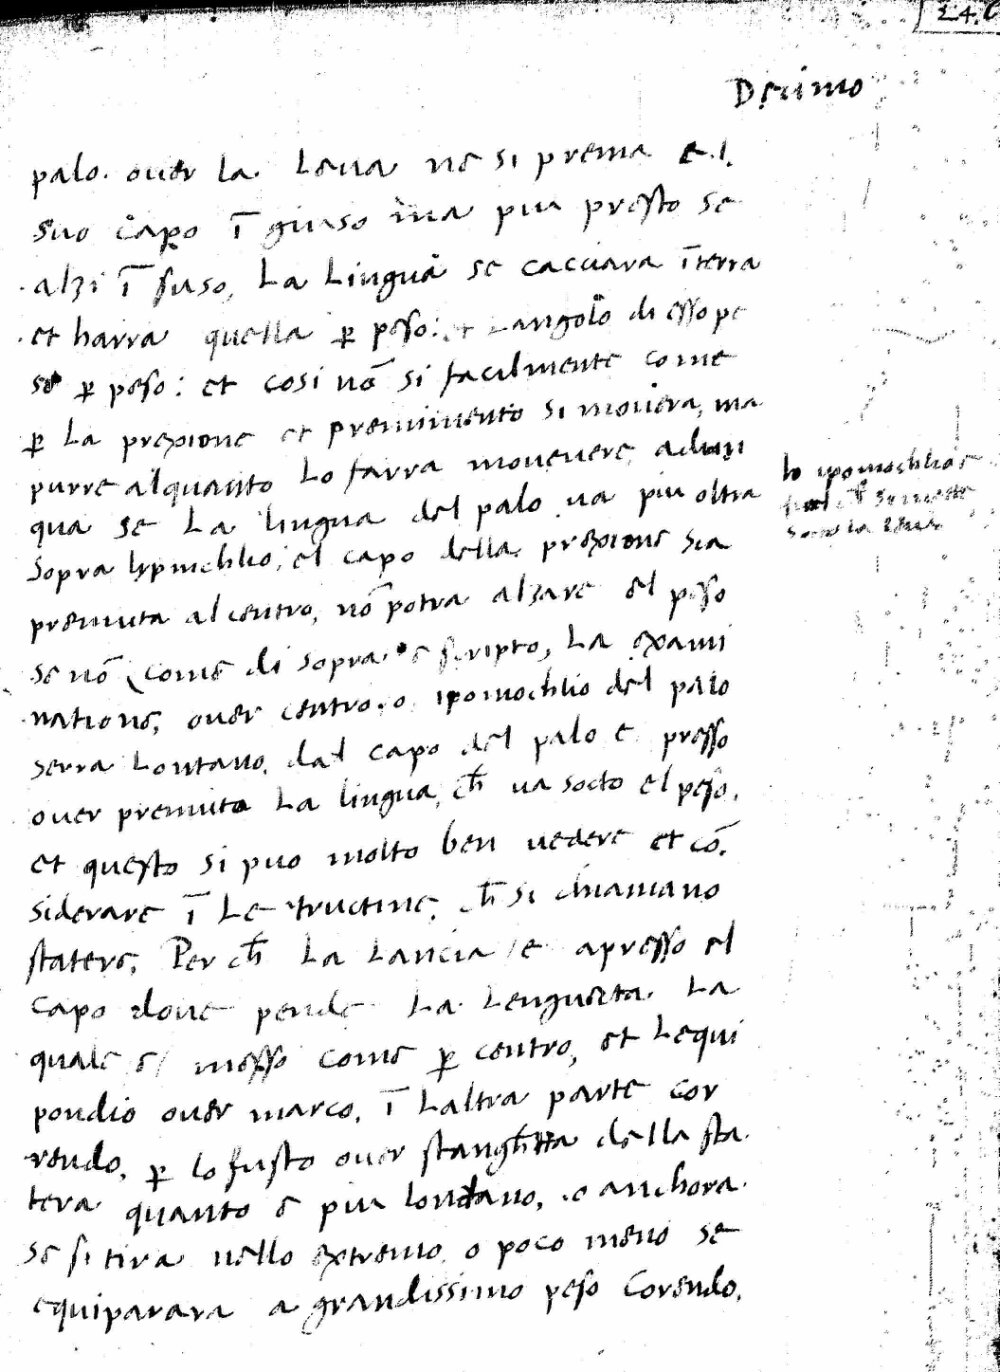 24.
Decimo
palo. ouer la. Leua ne si prema e.l.
suo capo ī giuso ma piu presto se
alzi ī suso, La Lingua se cacciara īterra
et harra quella p̱ peso: et Langolo di esso pe
so p̱ peso: et cosi nō si facilmente come
p̱ La prexione et premimento si mouera, ma
purre alquanto Lo farra moueuere, adun
qua se La lingua del palo ua piu oltra
lo ipomochlio e
quel ch̄ se mette
socto la leua
Sopra lypmochlio, el capo della prexione sia
premuta al centro, nō potra alzare el peso
se nō come di sopra e scripto, La exami
natione, ouer centro. o ipomochlio del palo
serra Lontano. dal capo del palo e presso
ouer premuta La lingua, ch̄ ua socto el peso.
et questo si puo molto ben uedere et cō.
siderare ī Le tructine. ch̄ si chiamano
statere. Per ch̄ La Lancia / e apresso el
capo doue pende La Lenguecta. La
quale e / messo come p̱ centro, et Lequi
pondio ouer marco. ī Laltra parte cor
rendo. p̱ lo fusto ouer stangh̄tta della sta
tera quanto e piu lontano, .o anchora.
se si tira nello extremo. o poco meno se
equiparara a grandissimo peso Corendo.